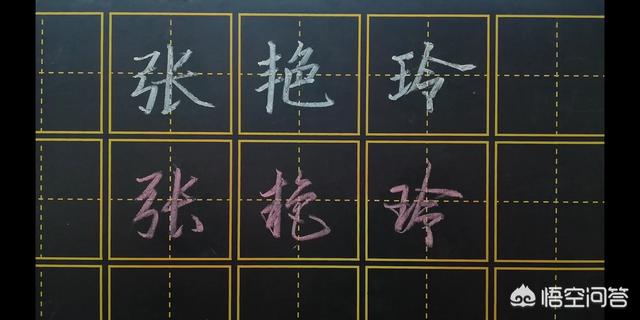 张艳玲
张艳玲
悟空问答